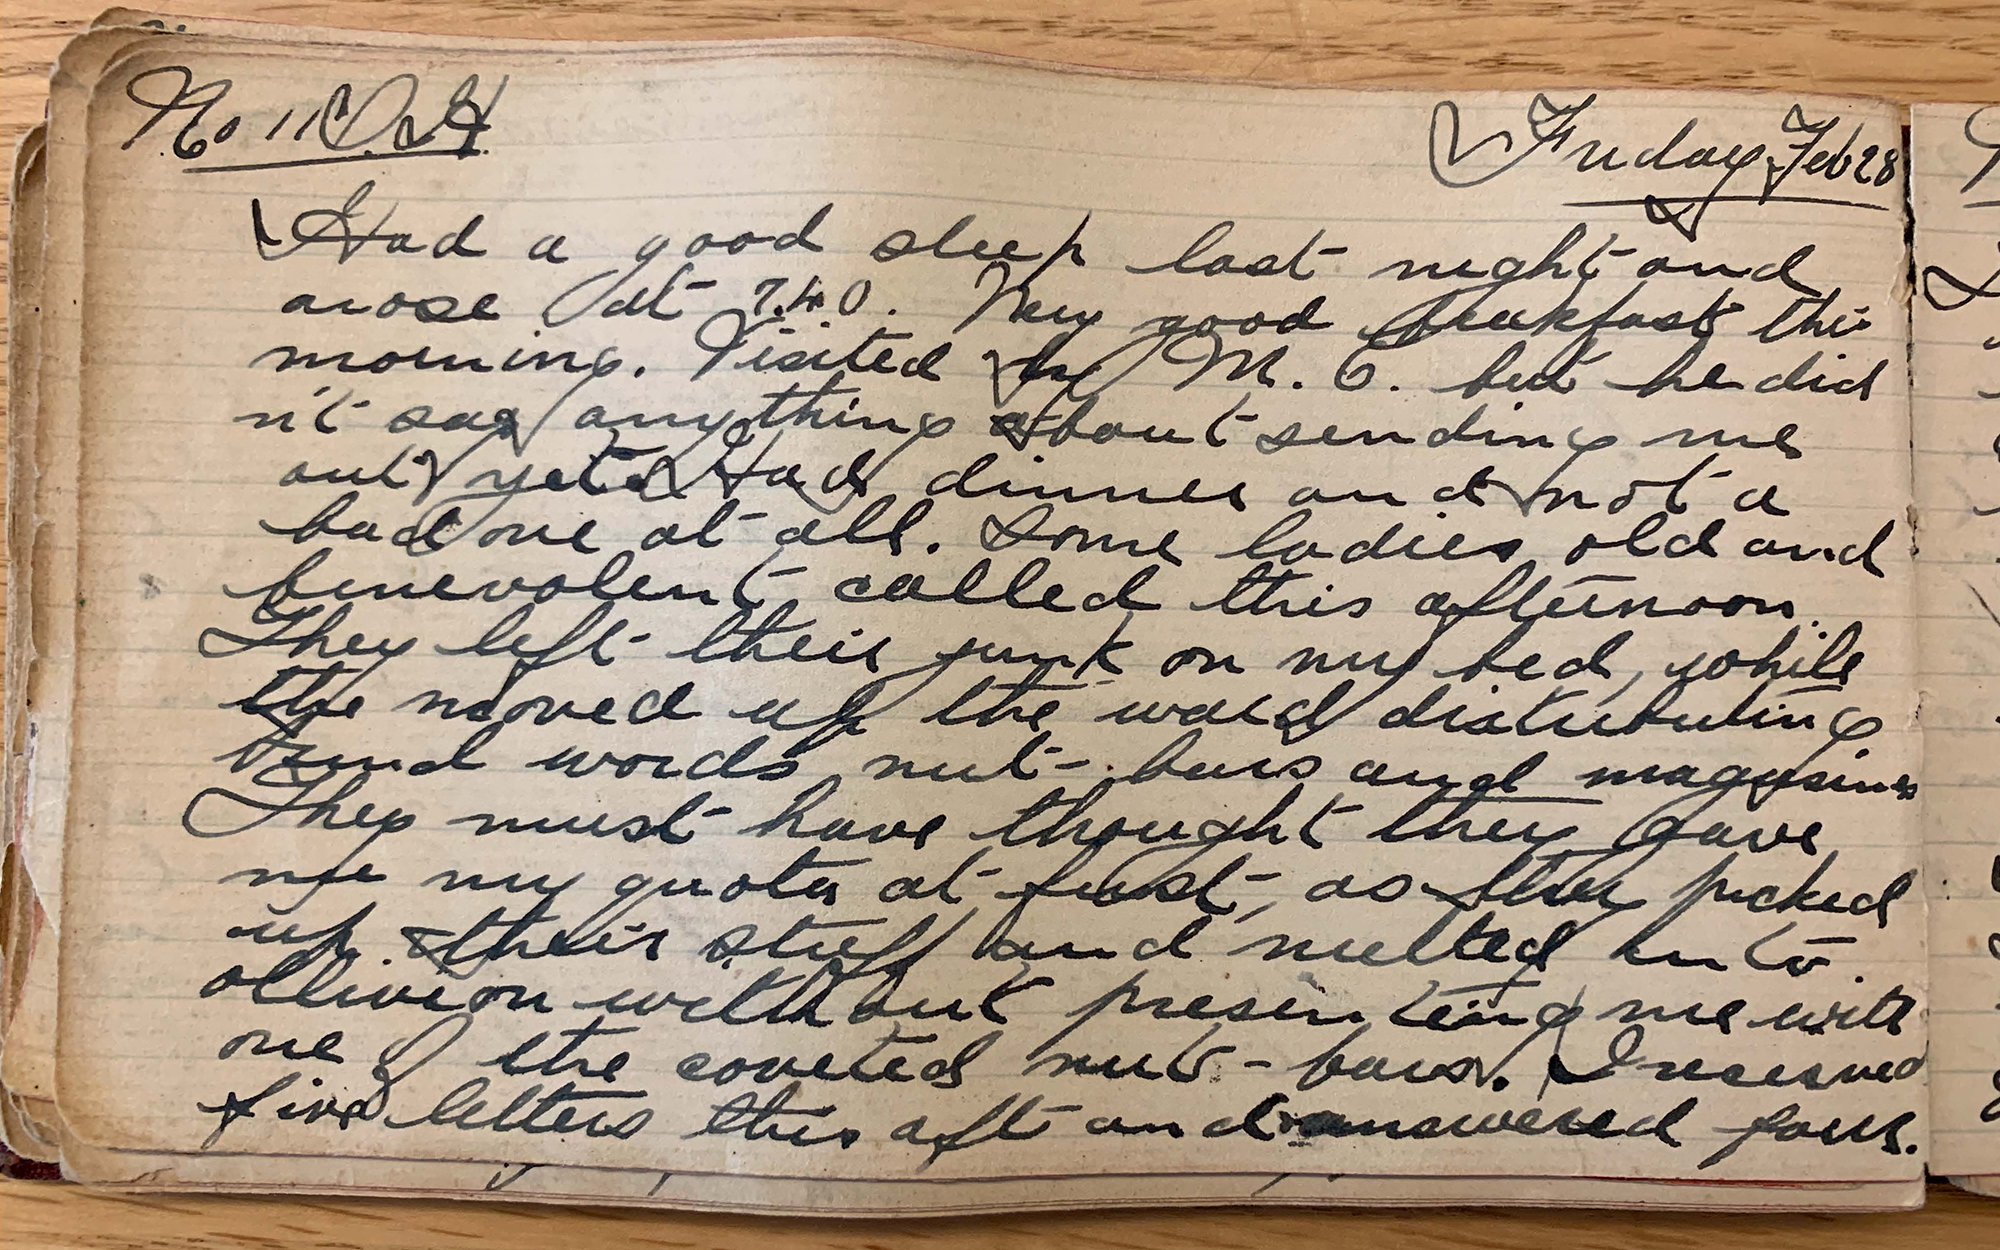 No 11 D.S.H. Friday, Feb 28
Had a good sleep last night and
arose at 7.40. Very good breakfast this
morning. Visited by M.O. but he did
n't say anything about sending me
out yet. Had dinner and not a
bad one at all. Some ladies old and
benevolent called this afternoon.
They left their junk on my bed, while
the moved up the ward distributing
kind words nut-bars and magasines
They must have thought they gave
me my quota at first, as they picked
up their stuff and melted into
oblivion without presenting me with
one of the coveted nut-bars. I received
five letters this aft and answered four.